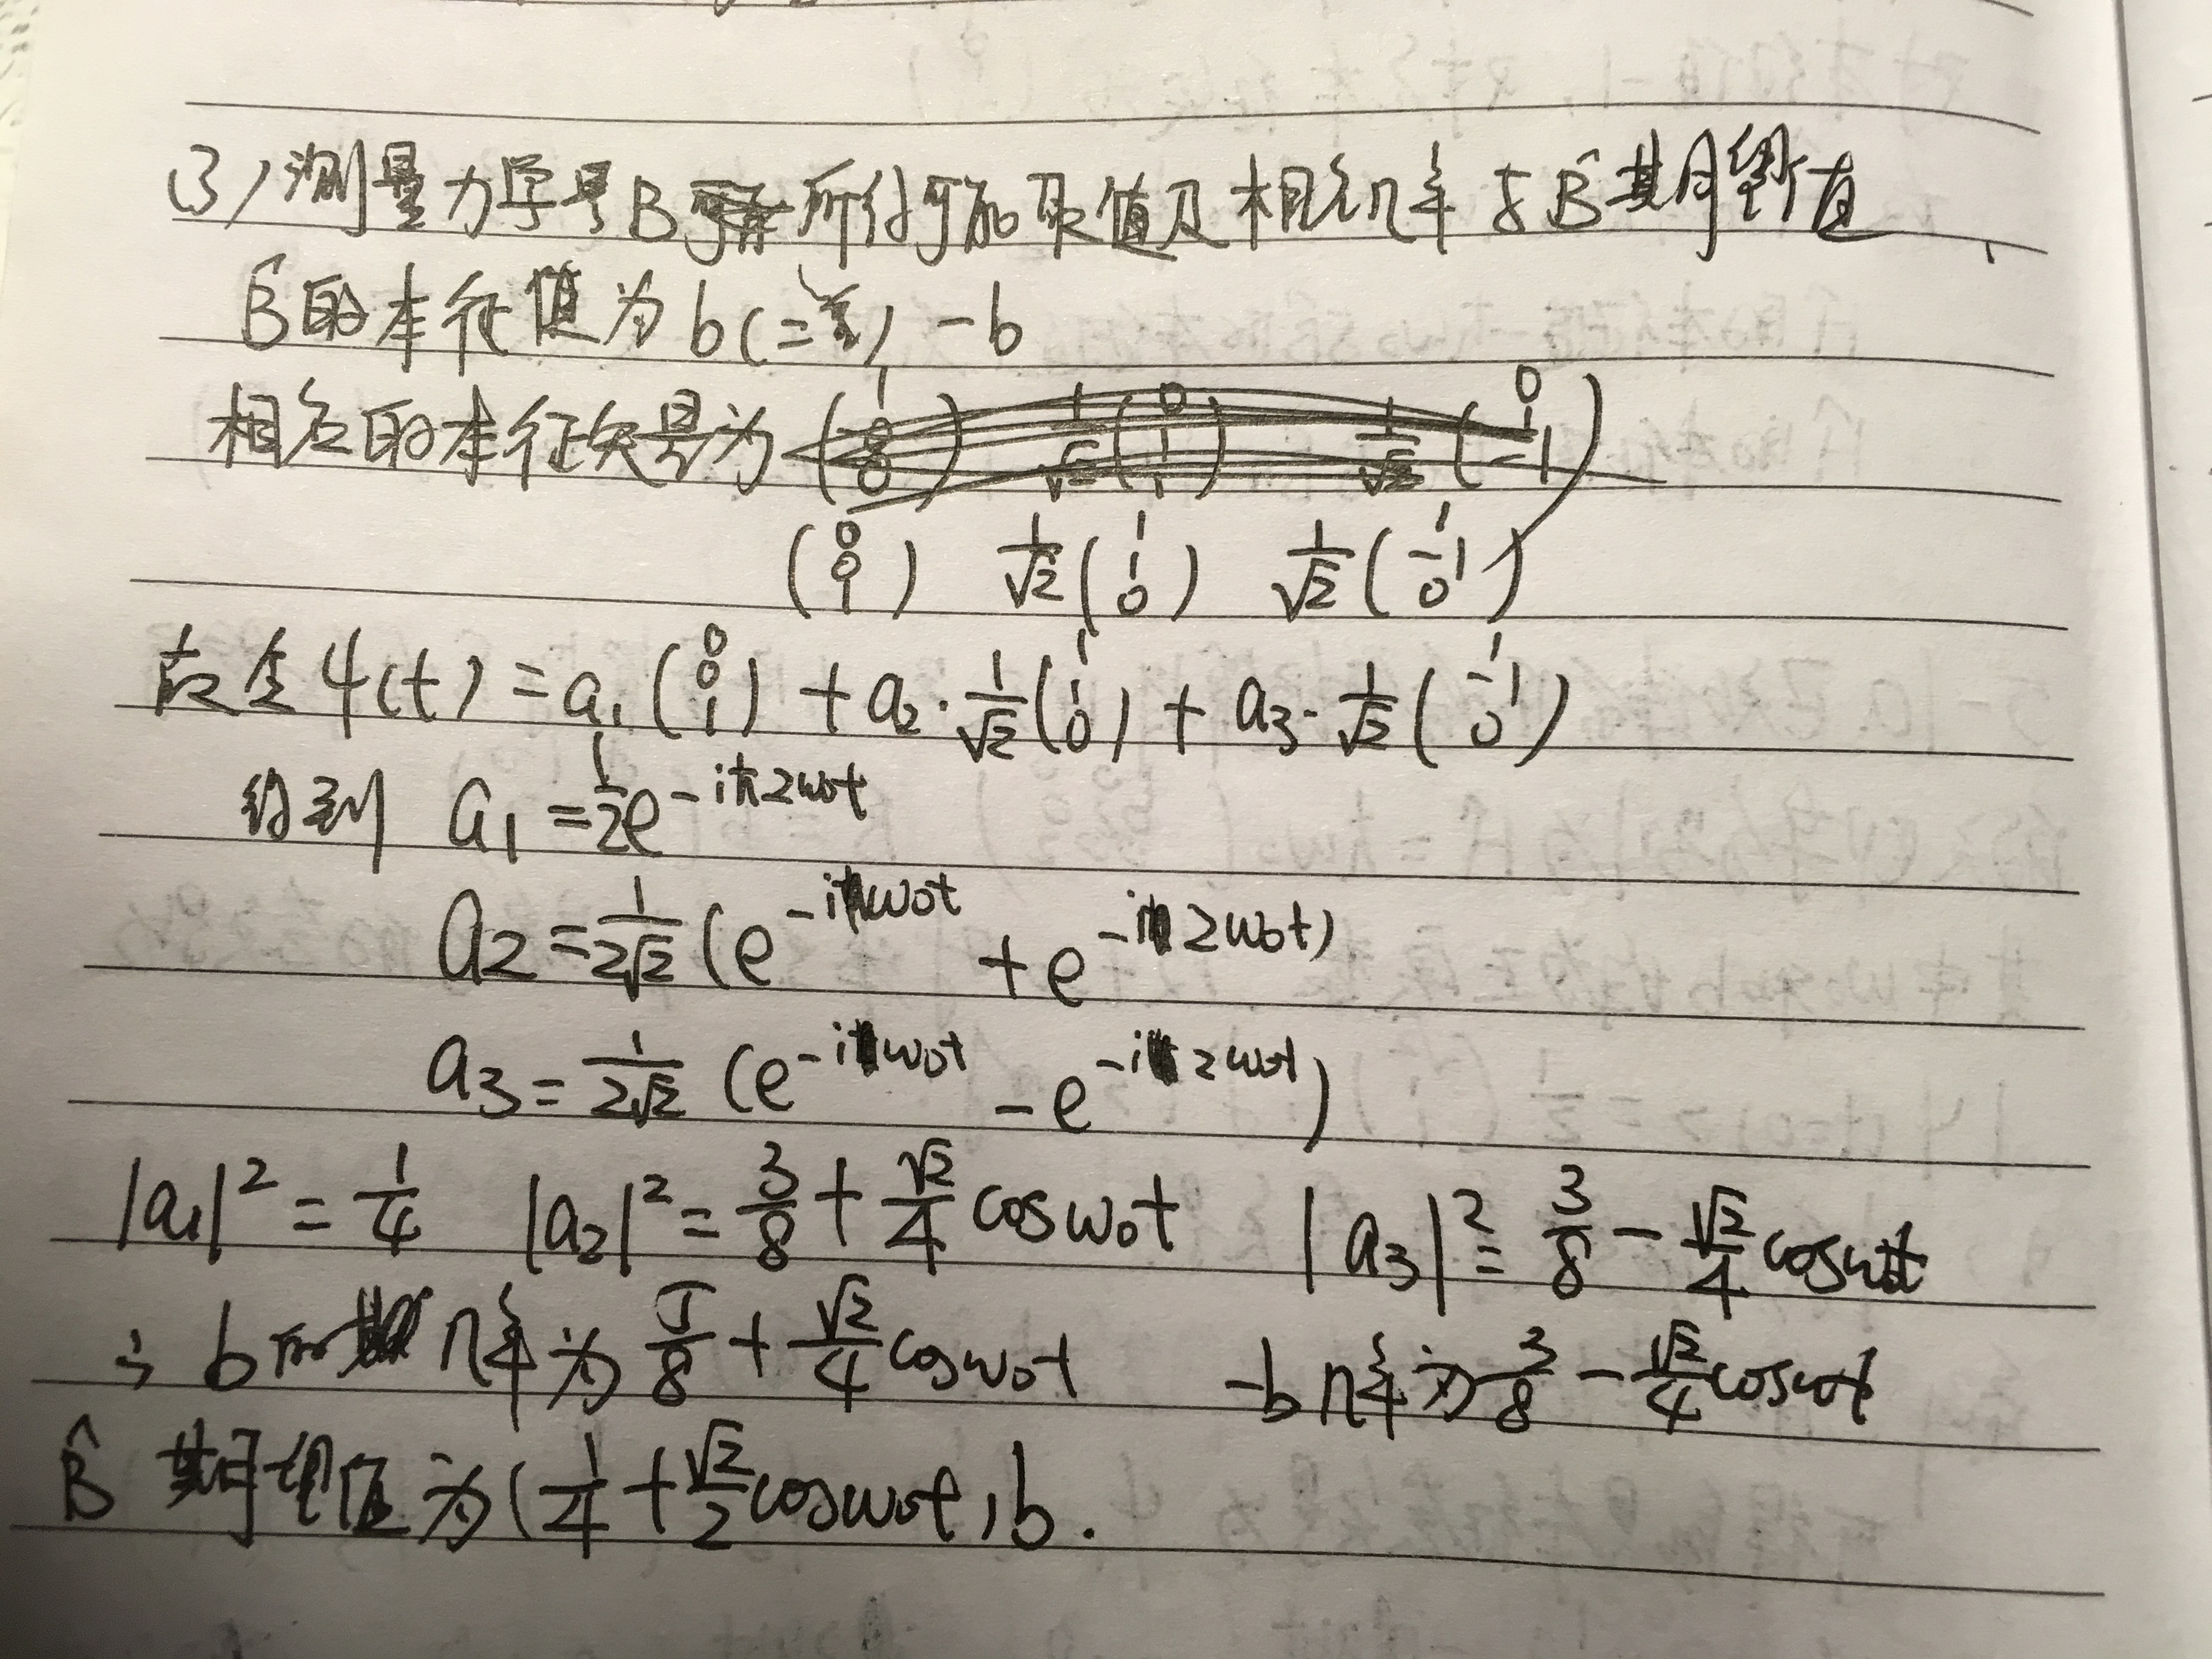 (3) 测量力学量B所得可能取值及相应几率与B̂期望值
B̂的本征值为 b(二重) -b
相应的本征矢量为
(0 0 1) 1/√2 (1 1 0) 1/√2 (1 -1 0)
故令 ψ(t) = a₁(0 0 1) + a₂·1/√2(1 1 0) + a₃·1/√2(1 -1 0)
得到 a₁ = 1/2 e^{-iħ2ω₀t}
a₂ = 1/(2√2) (e^{-iω₀t} + e^{-i2ω₀t})
a₃ = 1/(2√2) (e^{-iω₀t} - e^{-i2ω₀t})
|a₁|² = 1/4 |a₂|² = 3/8 + √2/4 cosω₀t |a₃|² = 3/8 - √2/4 cosω₀t
∴ b的几率为 5/8 + √2/4 cosω₀t -b几率为 3/8 - √2/4 cosω₀t
B̂ 期望值为 (1/4 + √2/2 cosω₀t)b.